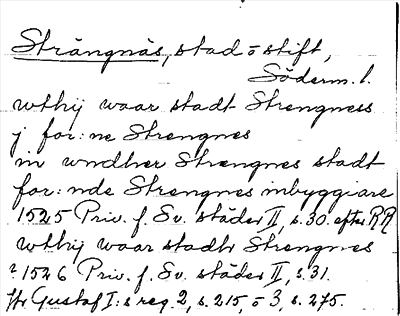 Strängnäs, stad o stift,
Söderm. l.
wthij waar stadt Strengness
j for:ne Strengnes
m wndher Strengnes stadt
for:nde Strengnes inbyggiare
1525 Priv. f. Sv. städer II, s.30. efter RR
wthij waar stadh Strengnes
1526 Priv. f. Sv. städer II, s.31.
Gustaf I:s reg. 2, s.215, o 3, s.275.